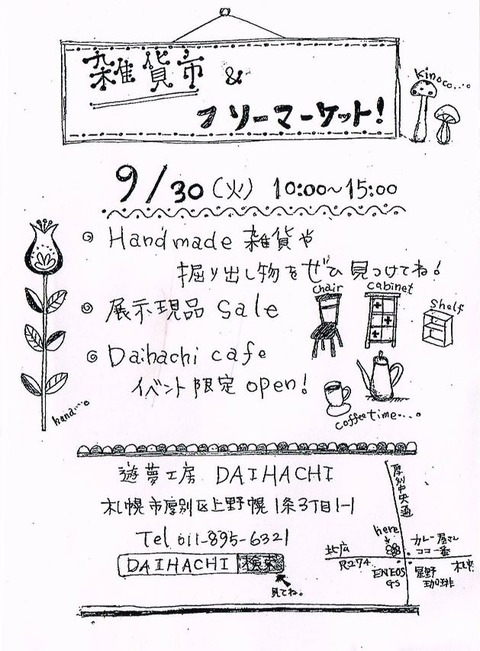 雑貨市 &
フリーマーケット!
kinoco...。
9/30(火) 10:00~15:00
◎ Handmade 雑貨や
掘り出し物をぜひ見つけてね!
◎ 展示現品 Sale
chair
cabinet
Shelf
◎ Daihachi cafe
イベント限定 open!
hana...。
coffee time...。
遊夢工房 DAIHACHI
札幌市厚別区上野幌1条3丁目1-1
Tel 011-895-6321
DAIHACHI 検索
見てね。
厚別中央通
here
カレー屋さん
ココ一番
北広
R274
札幌
ENEOS
GS
星野
珈琲